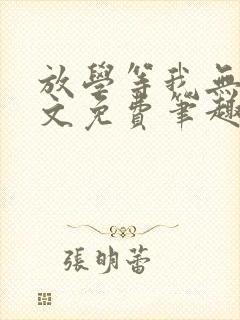 放學等我無
文免費筆趣
張明蕾